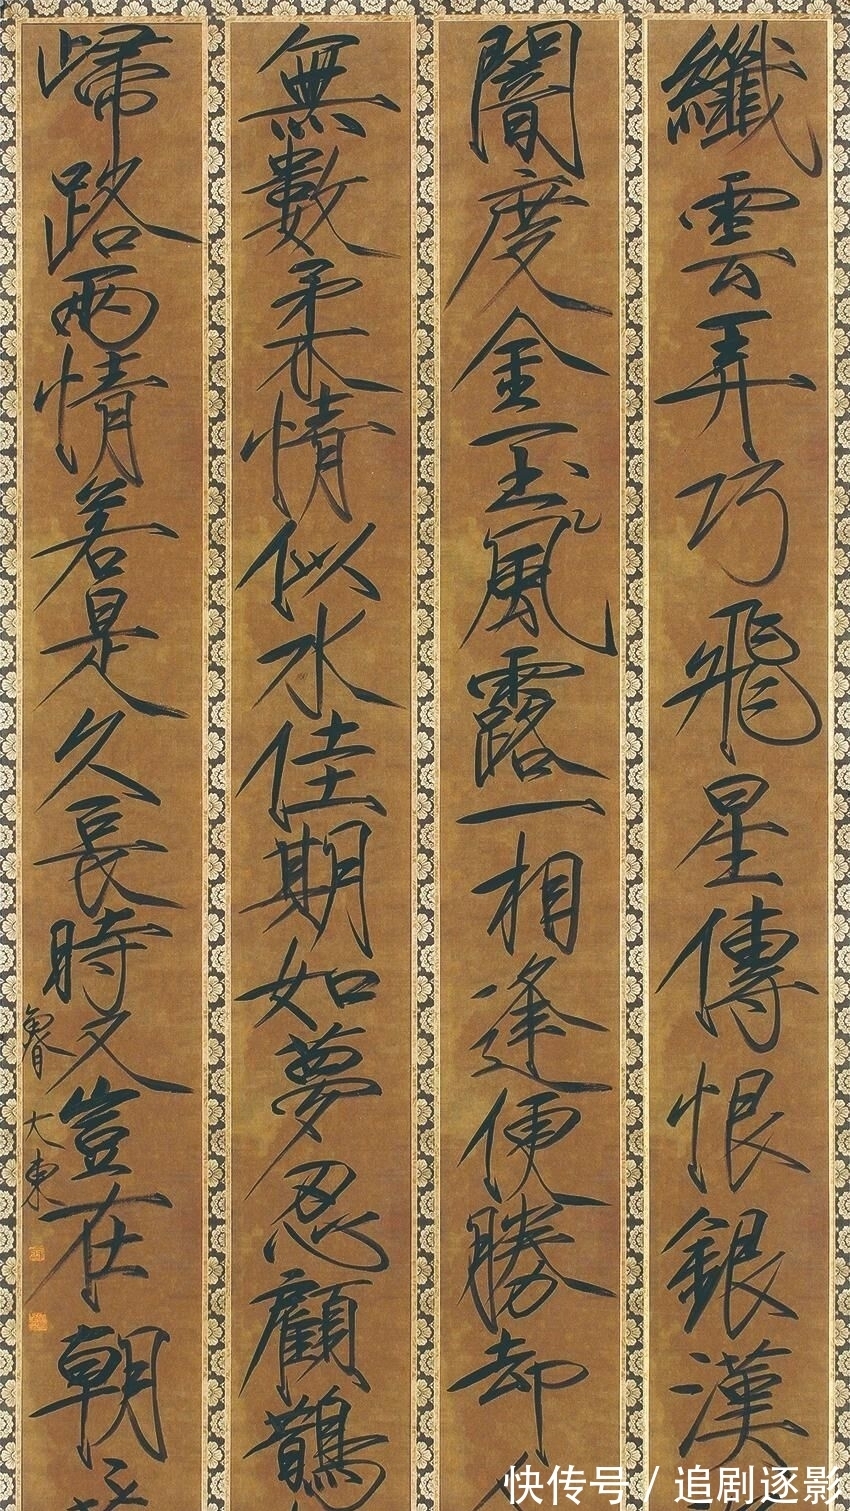 纖雲弄巧飛星傳恨銀漢
闇度金玉風露一相逢便勝却
無數柔情似水佳期如夢忍顧鵲
歸路兩情若是久長時又豈在朝
魯大東
快传号 / 追剧逐影